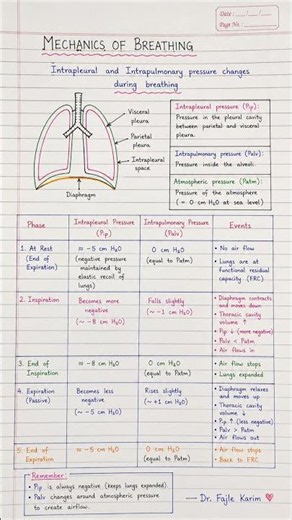 Date : __/__/__
Page No. : ____
MECHANICS OF BREATHING
Intrapleural and Intrapulmonary pressure changes
during breathing
Visceral
pleura
Parietal
pleura
Intrapleural
space
Diaphragm
Intrapleural pressure (Pip):
Pressure in the pleural cavity
between parietal and visceral
pleura.
Intrapulmonary pressure (Palv):
Pressure inside the alveoli.
Atmospheric pressure (Patm):
Pressure of the atmosphere
(= 0 cm H₂O at sea level)
Phase
Intrapleural Pressure
(Pip)
Intrapulmonary Pressure
(Palv)
Events
1. At Rest
(End of
Expiration)
≈ -5 cm H₂O
(negative pressure
maintained by
elastic recoil of
lungs)
0 cm H₂O
(equal to Patm)
• No air flow
• Lungs are at
functional residual
capacity (FRC)
2. Inspiration
Becomes more
negative
(~ -8 cm H₂O)
Falls slightly
(~ -1 cm H₂O)
• Diaphragm contracts
and moves down
• Thoracic cavity
volume ↑
• Pip ↓ (more negative)
• Palv < Patm
• Air flows in
3. End of
Inspiration
≈ -8 cm H₂O
0 cm H₂O
(equal to Patm)
• Air flow stops
• Lungs expanded
4. Expiration
(Passive)
Becomes less
negative
(~ -5 cm H₂O)
Rises slightly
(~ +1 cm H₂O)
• Diaphragm relaxes
and moves up
• Thoracic cavity
volume ↓
• Pip ↑ (less negative)
• Palv > Patm
• Air flows out
5. End of
Expiration
≈ -5 cm H₂O
0 cm H₂O
(equal to Patm)
• Air flow stops
• Back to FRC
Remember :
• Pip is always negative (keeps lungs expanded).
• Palv changes around atmospheric pressure
to create airflow.
— Dr. Fajle Karim